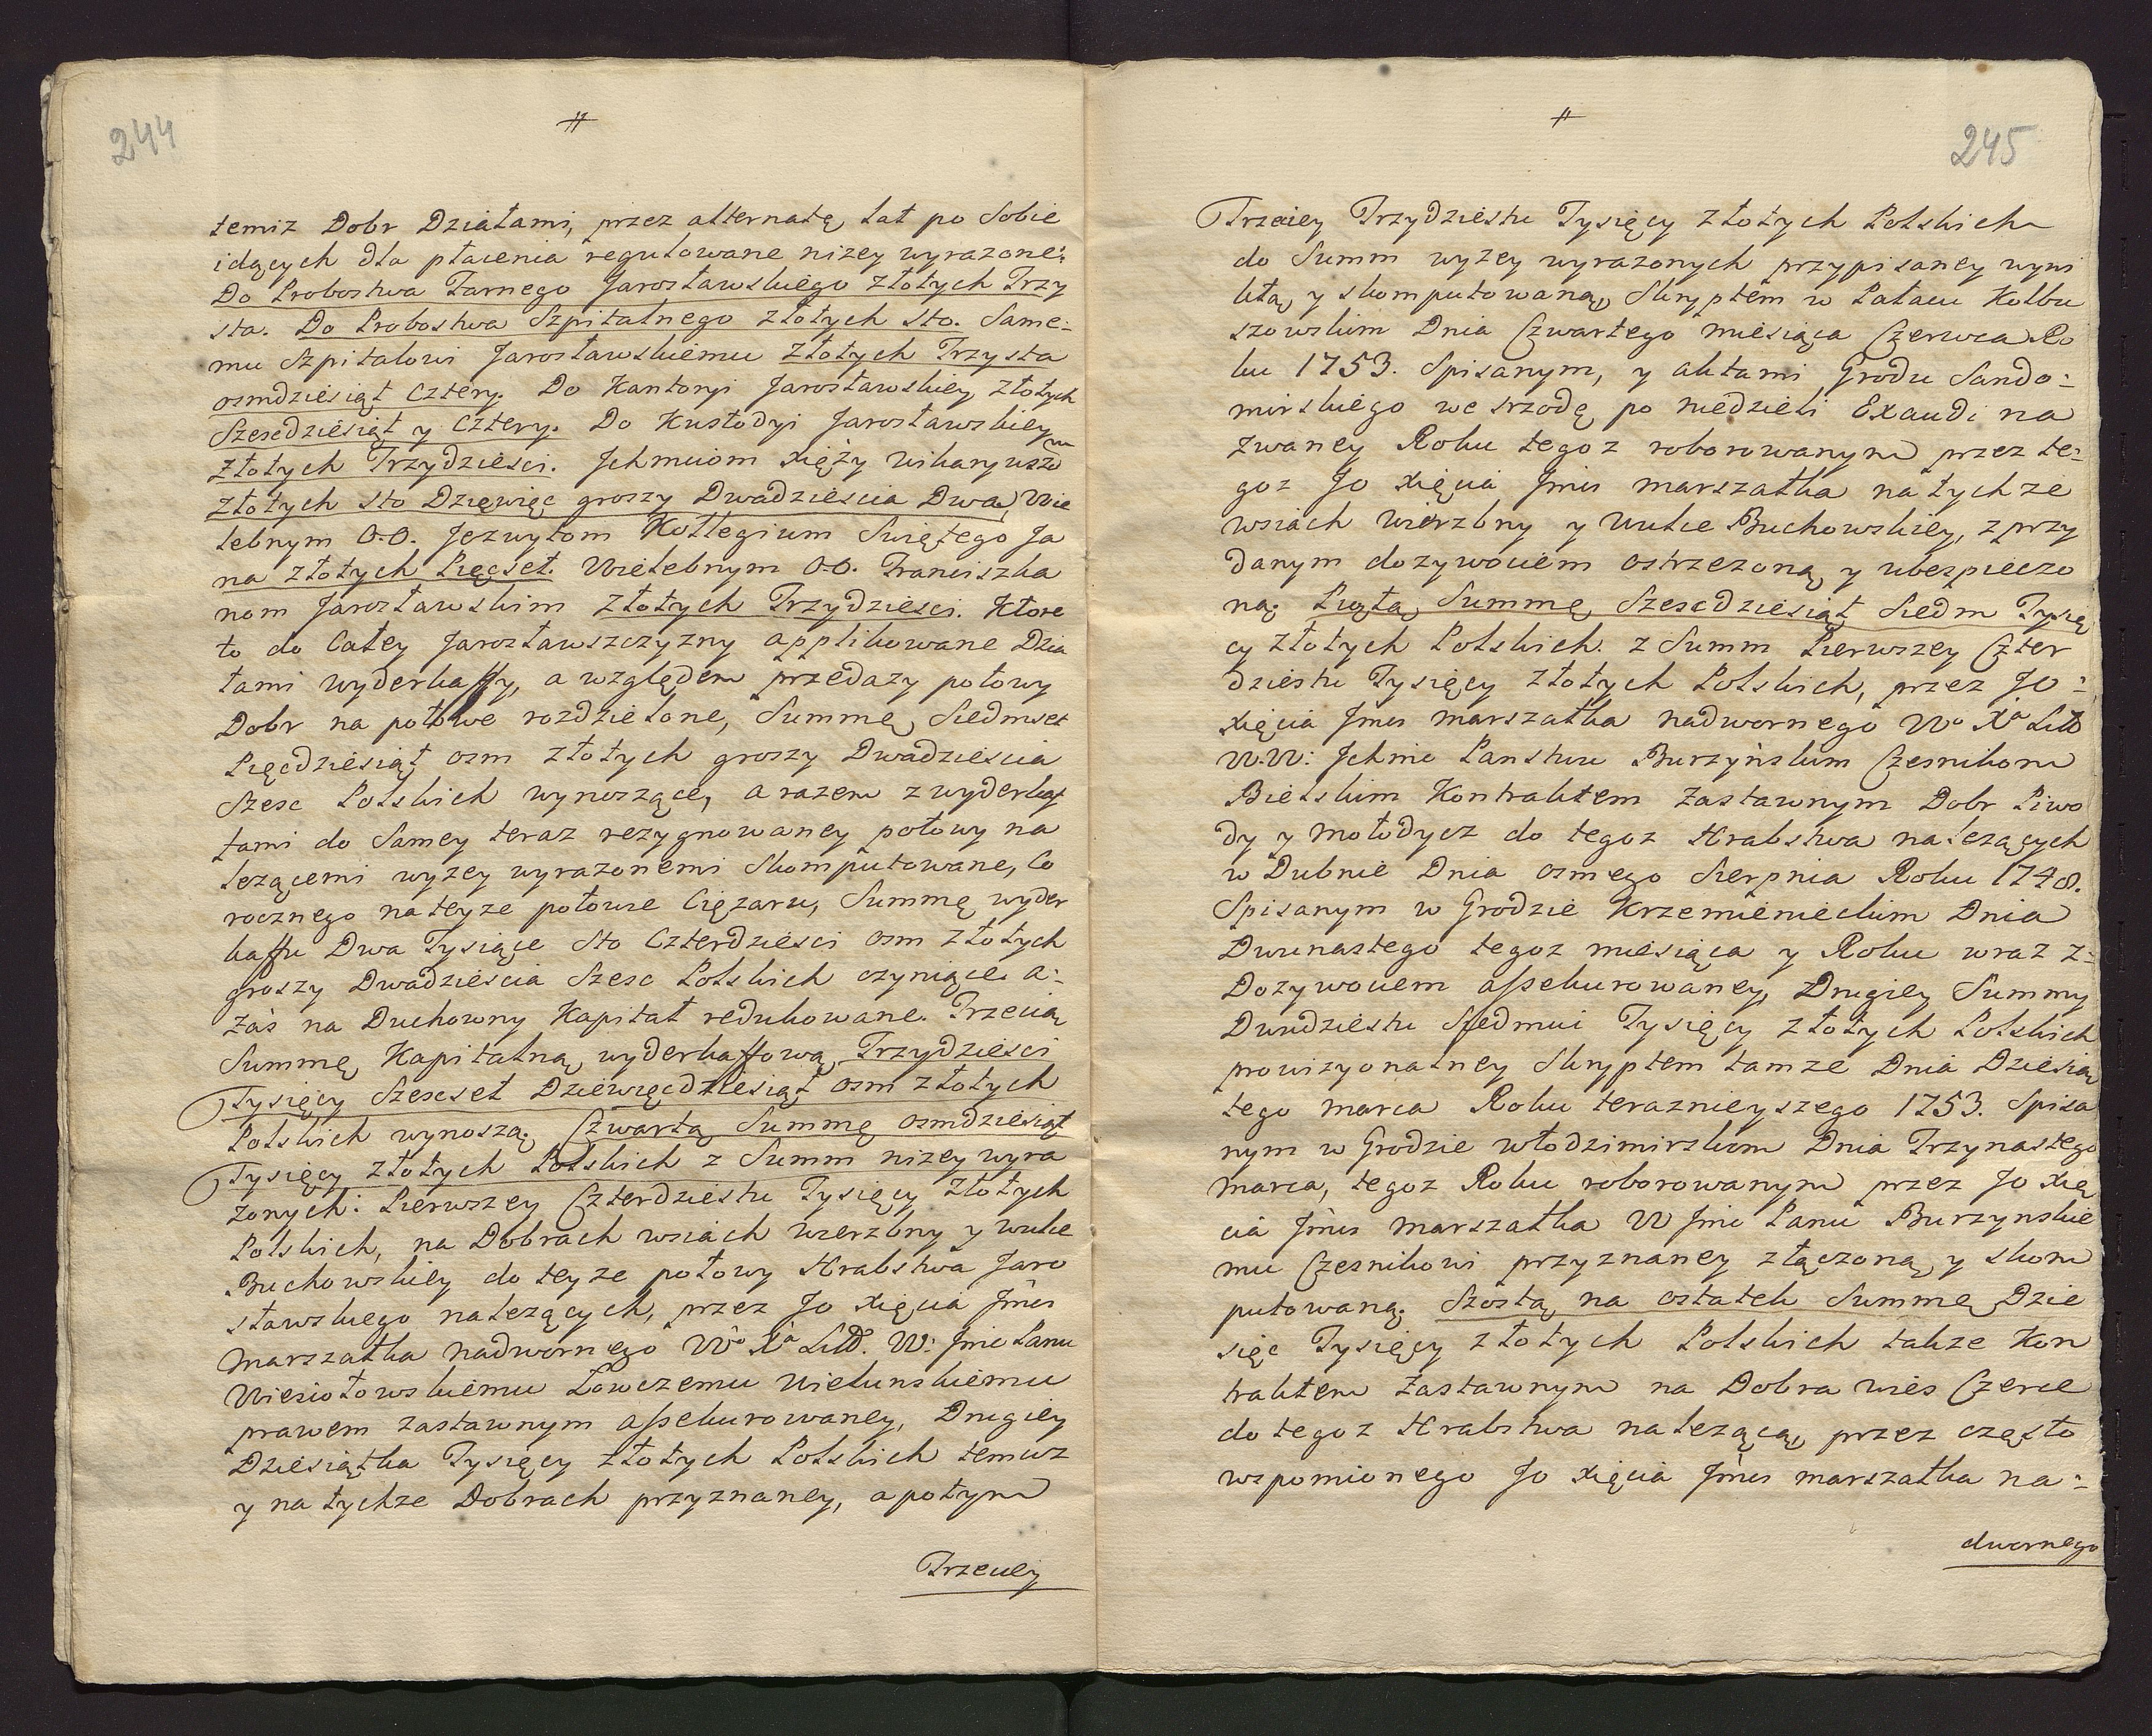 244
#
temiz Dobr Działami, przez alternatę lat po Sobie
idących dla płacenia regulowane niżey wyrazone:
Do Probostwa Farnego Jarosławskiego złotych Trzy
sta. Do Probostwa Szpitalnego złotych sto. Same:
mu Szpitalowi Jarosławskiemu złotych Trzysta
osmdziesiąt Cztery. Do Kantoryi Jarosławskiey złotych
Szescdziesiąt y Cztery. Do Kustodyi Jarosławskiey
złotych Trzydziesci. Jchmciom xięży Wikaryuszom
złotych sto Dziewięc groszy Dwadziescia Dwa, Wie
lebnym O.O. Jezuytom Kollegium Swiętego Ja
na złotych Pięcset. Wielebnym O.O. Franciszka
nom Jarosławskim złotych Trzydziesci. Ktore
to do Całey Jarosławszczyzny applikowane Dzia
łami wyderkaffy, a względem przedazy połowy
Dobr na połowe rozdzielone, Summę Siedmset
Pięcdziesiąt osm złotych groszy Dwadziescia
Szesc Polskich wynoszące, a razem z wyderkaf
fami do Samey teraz rezygnowaney połowy na
lezącemi wyzey wyrazonemi Skomputowane, Co
rocznego na teyze połowie Ciężaru, Summę wyder
kaffu Dwa Tysiące Sto Czterdziesci osm złotych
groszy Dwadziescia Szesc Polskich czyniące a:
Zaś na Duchowny Kapitał redukowane. Trzecią
Summę Kapitalną wyderkaffową Trzydziesci
Tysięcy Szescset Dziewięcdziesiąt osm złotych
Polskich wynoszą. Czwartą Summę osmdziesiąt
Tysięcy złotych Polskich z Summ nizey wyra
zonych: Pierwszey Czterdziestu Tysięcy złotych
Polskich, na Dobrach wsiach wierzbny y wulce
Buchowskiey do teyze połowy Hrabstwa Jaro
sławskiego nalezących, przez Jo xięcia Jmci
Marszałka nadwornego Wo Xa Litt. W: Jmc Panu
Wiesiołowskiemu Łowczemu Wielunskiemu
prawem zastawnym assekurowaney, Drugiey
Dziesiątka Tysięcy złotych Polskich temuz
y na tychze Dobrach przyznaney, a potym
Trzeciey
245
#
Trzeciey Trzydziestu Tysięcy złotych Polskich
do Summ wyzey wyrazonych przypisaney wyni
kłą y skomputowaną, Skryptem w Pałacu Kolbu
szowskim Dnia Czwartego miesiąca Czerwca Ro
ku 1753. Spisanym, y aktami Grodu Sando:
mirskiego we srzodę po niedzieli Exaudi na
zwaney Roku tegoz roborowanym przez te:
goz Jo xięcia Jmci marszałka na tychze
wsiach wierzbny y wulce Buchowskiey, z przy
danym dozywociem ostrzezoną y ubezpieczo
ną. Piątą Summę Szescdziesiąt Siedm Tysię
cy złotych Polskich. z Summ Pierwszey Czter
dziestu Tysięcy złotych Polskich, przez JO:
xięcia Jmci marszałka nadwornego Wo Xa Litt
W.W: Jchmc Panstwu Burzyńskim Czesnikom
Bielskim Kontraktem Zastawnym Dobr Piwo
dy y Mołodycz do tegoz Hrabstwa nalezących
w Dubnie Dnia osmego Sierpnia Roku 1748.
Spisanym w Grodzie Krzemienieckim Dnia
Dwunastego tegoz miesiąca y Roku wraz z:
Dozywociem assekurowaney, Drugiey Summy
Dwudziestu Siedmiu Tysięcy złotych Polskich
prowizyonalney Skryptem tamze Dnia Dziesią
tego marca Roku terazniejszego 1753. Spisa
nym w Grodzie włodzimirskim Dnia Trzynastego
marca, tegoz Roku roborowanym przez Jo Xię
cia Jmci marszałka W Jmc Panu Burzynskie
mu Czesnikowi przyznaney złączoną, y skom
putowaną. Szostą na ostatek Summę Dzie
sięc Tysięcy złotych Polskich także Kon
traktem Zastawnym na Dobra wies Czerce
do tegoz Hrabstwa nalezącą, przez często
wspomionego Jo xięcia Jmci marszałka na:
dwornego